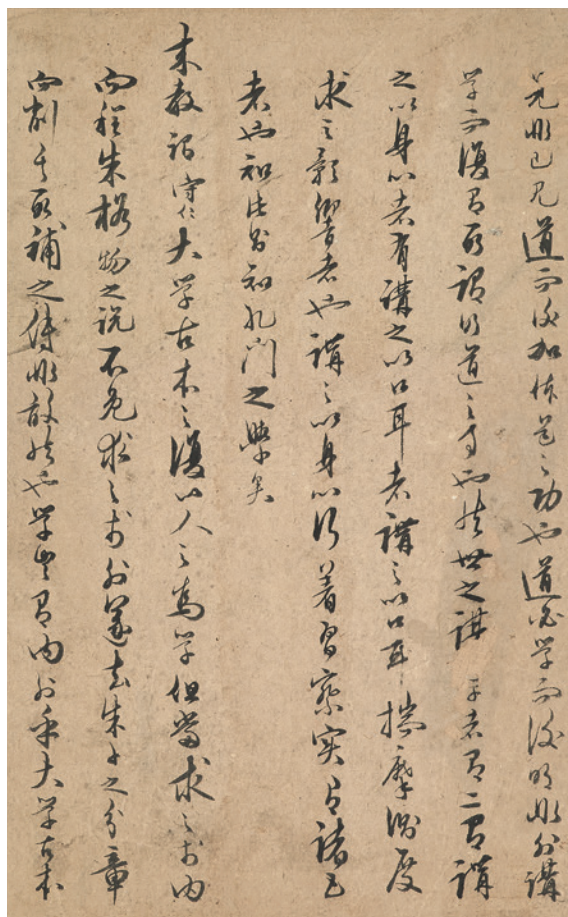 見非已見道而後加体道之功也道必學而後明非外講
學而復有所謂明道之事也然世之講學者有二有講
之以身心者有講之以口耳者講之以口耳揣摩測度
求之影響者也講之以身心行著習察實有諸己
者也知此則知孔門之學矣
來教謂守仁大學古本之復以人之為學但當求之於內
而程朱格物之說不免求之於外遂去朱子之分章
而削其所補之傳非敢然也學豈有內外乎大學古本